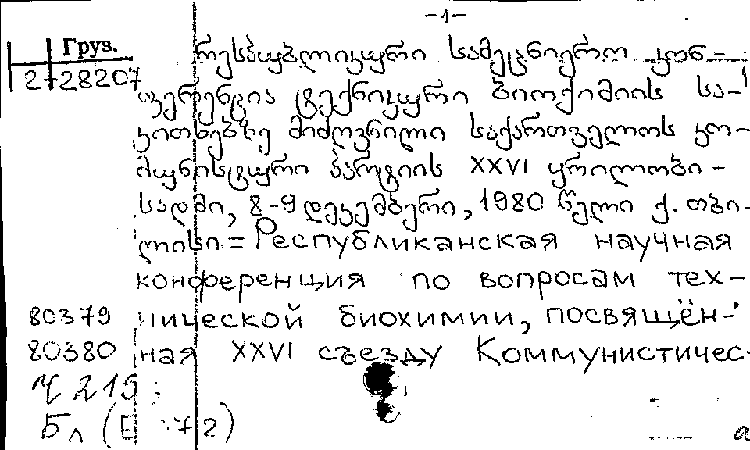 -1-
Груз.
2-28207
რესპუბლიკური სამეცნიერო კონ-
ფერენცია ტექნიკური ბიოქიმიის სა-
კითხებზე მიძღვნილი საქართველოს კო-
მუნისტური პარტიის XXVI ყრილობი-
სადმი, 8-9 დეკემბერი, 1980 წელი ქ. თბი-
ლისი = Республиканская научная
конференция по вопросам тех-
80379 нической биохимии, посвящён-
80380 ная XXVI съезду Коммунистичес-
Ч 215
Бл (